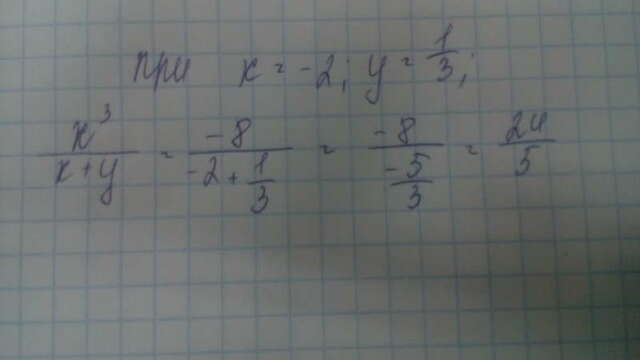 при x = -2; y = 1/3;
x³/(x+y) = -8/(-2 + 1/3) = -8/(-5/3) = 24/5